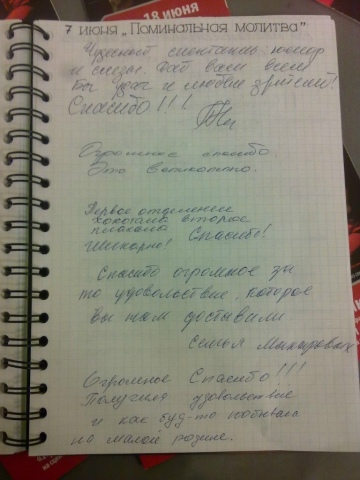 18 июня
7 июня „Поминальная молитва"
Чудесный спектакль, юмор
и слёзы. Дай вам всем
Бог удач и любви зрителей!
Спасибо!!!
Огромное спасибо.
Это великолепно.
Первое отделение
хохотала второе
плакала
Шикарно! Спасибо!
Спасибо огромное за
то удовольствие, которое
вы нам доставили
семья
Огромное Спасибо!!!
Получила удовольствие
и как буд-то побывала
на малой родине.